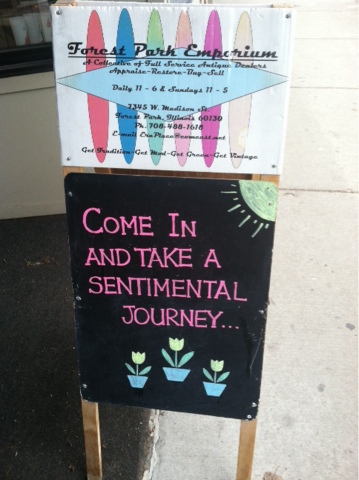 Forest Park Emporium
A Collective of Full Service Antique Dealers
Appraise-Restore-Buy-Sell
Daily 11 - 6 & Sundays 11 - 5
7345 W. Madison St.
Forest Park, Illinois 60130
Ph. 708-488-1618
Get Tradition-Get Mod-Get Green-Get Vintage
COME IN
AND TAKE A
SENTIMENTAL
JOURNEY...